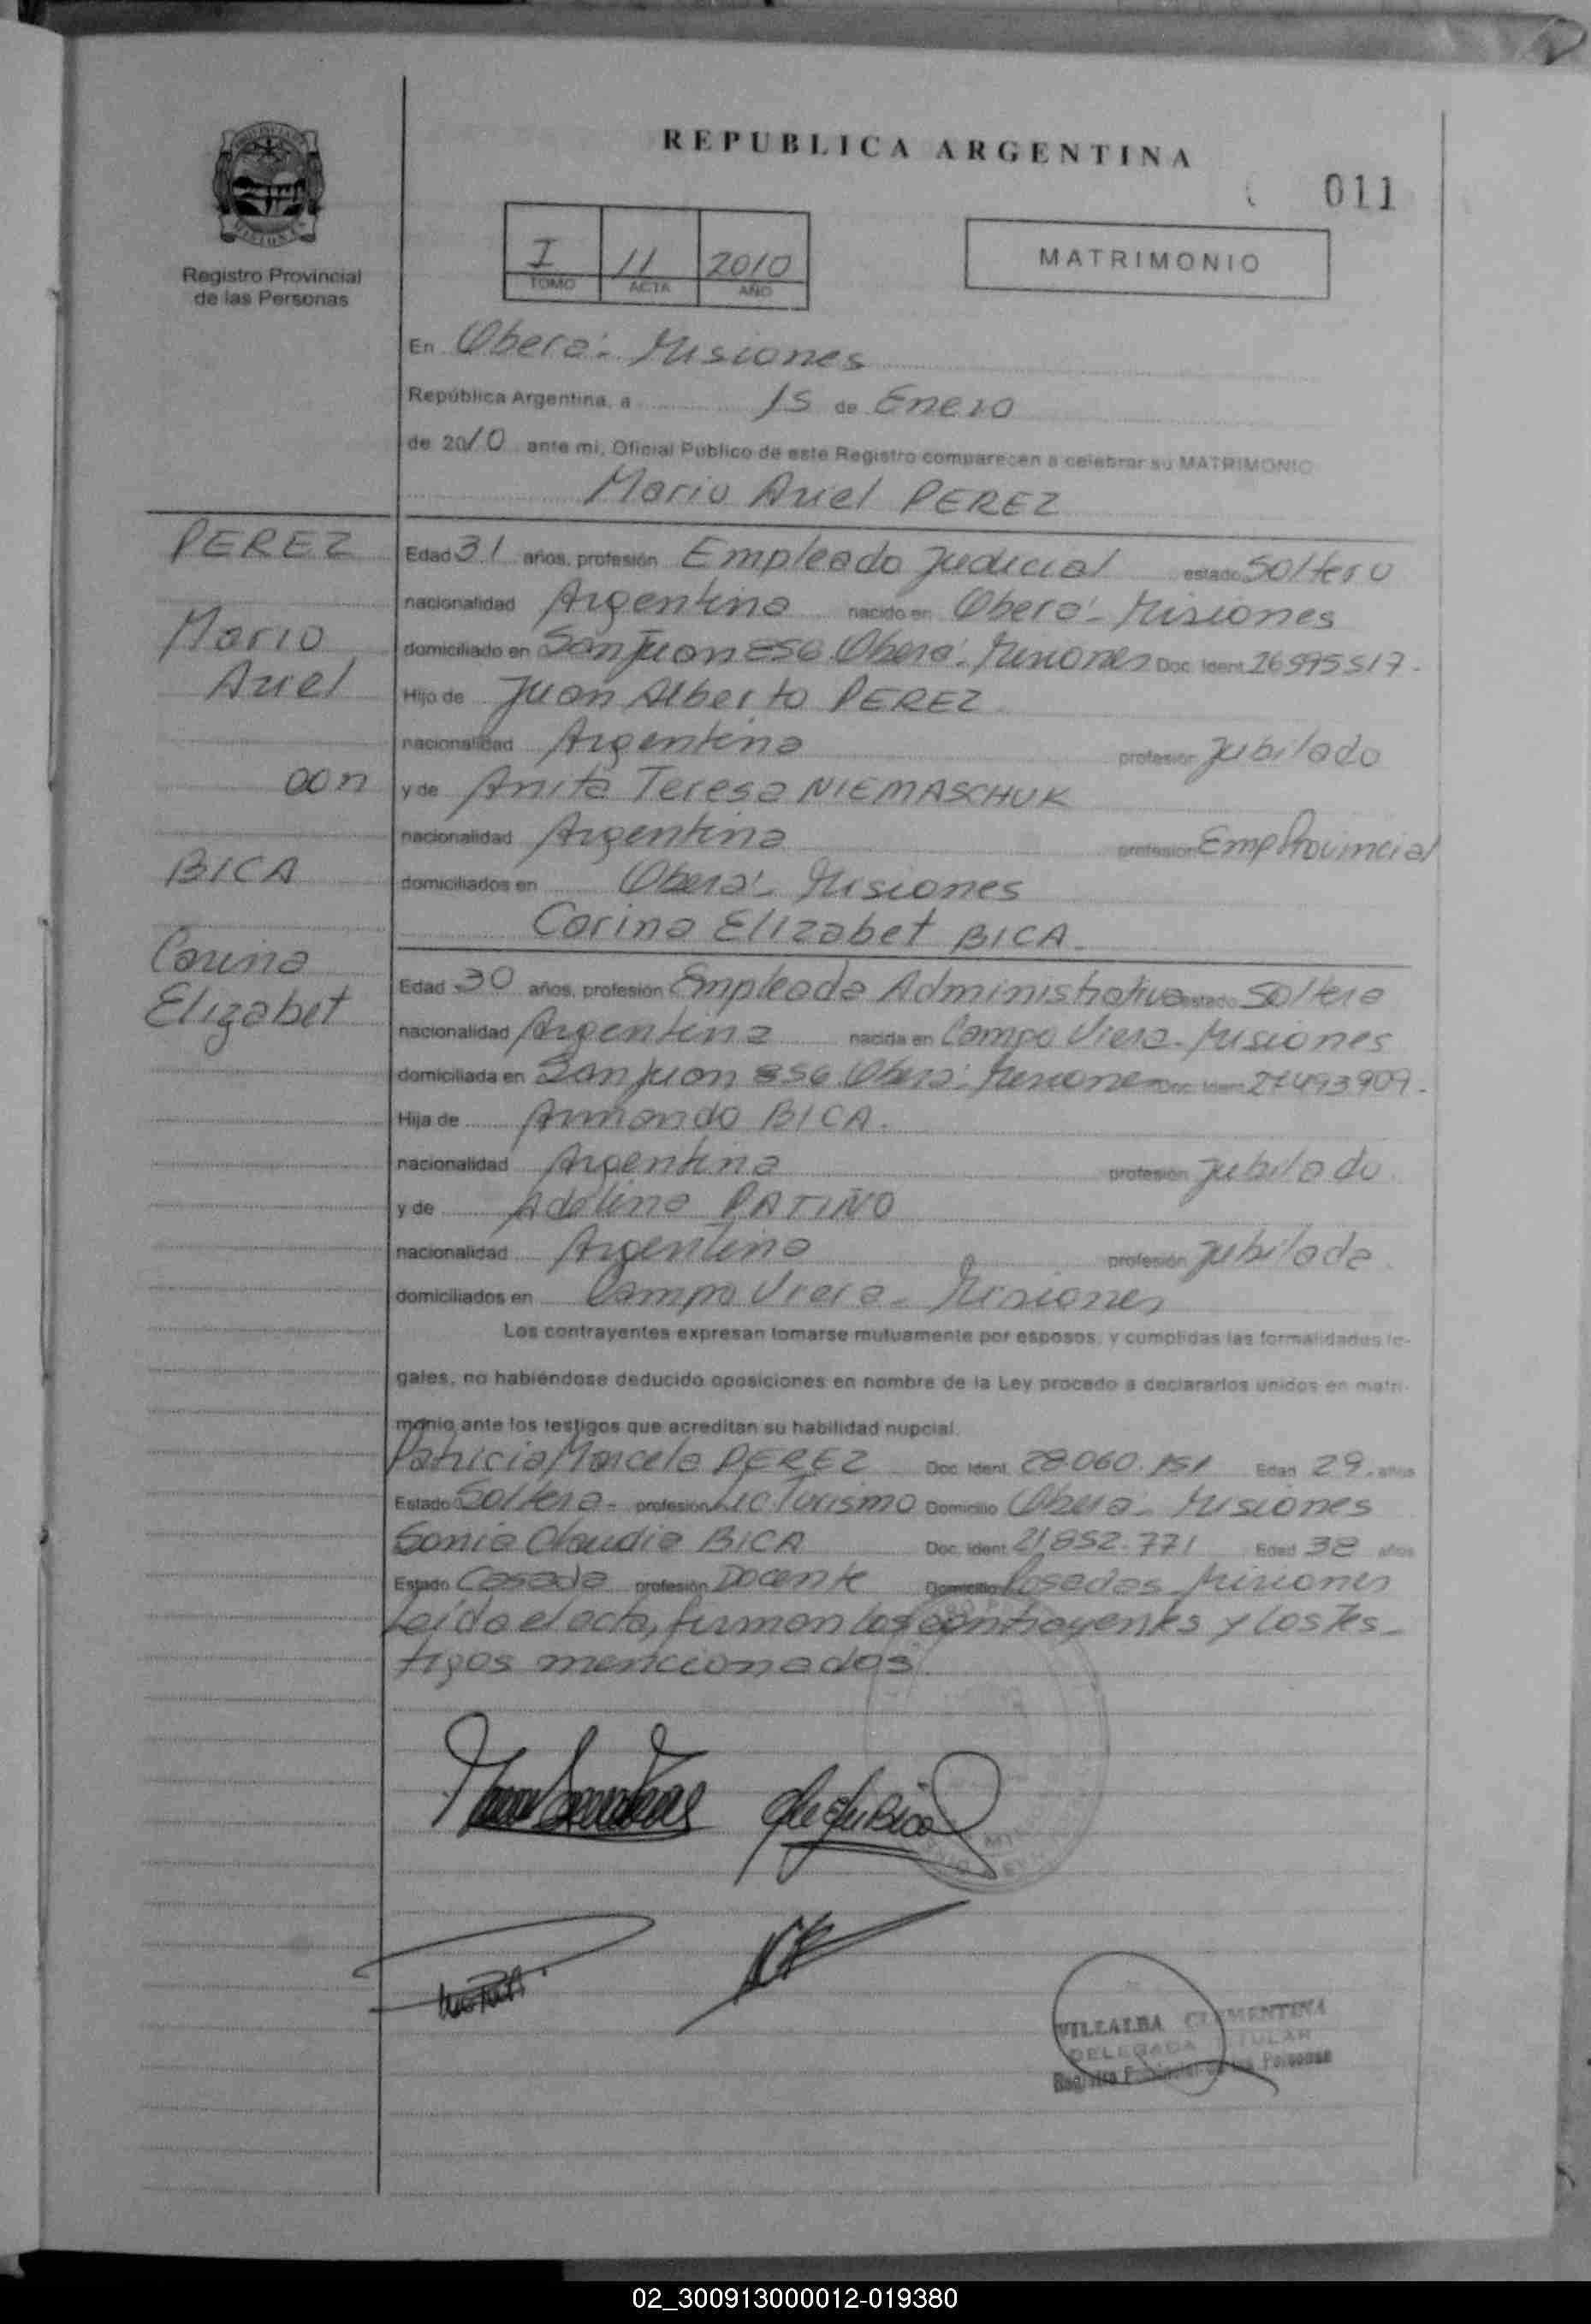 REPUBLICA ARGENTINA
011
Registro Provincial
de las Personas
I 11 2010
TOMO ACTA AÑO
MATRIMONIO
En Oberá - Misiones
República Argentina, a 15 de Enero
de 2010 ante mi, Oficial Público de este Registro comparecen a celebrar su MATRIMONIO
Mario Ariel PEREZ
PEREZ
Mario
Ariel
con
BICA
Carina
Elizabet
Edad 31 años, profesión Empleado Judicial estado Soltero
nacionalidad Argentina nacido en Oberá - Misiones
domiciliado en San Juan 856 Oberá - Misiones Doc. Ident. 26995517.-
Hijo de Juan Alberto PEREZ
nacionalidad Argentina profesión Jubilado
y de Anita Teresa NIEMASCHUK
nacionalidad Argentina profesión Emp Provincial
domiciliados en Oberá - Misiones
Carina Elizabet BICA
Edad 30 años, profesión Empleada Administrativa estado Soltera
nacionalidad Argentina nacida en Campo Viera - Misiones
domiciliada en San Juan 856 Oberá - Misiones Doc. Ident. 27493909.-
Hija de Armando BICA.
nacionalidad Argentina profesión Jubilado
y de Adelina PATIÑO
nacionalidad Argentina profesión Jubilada
domiciliados en Campo Viera - Misiones
Los contrayentes expresan tomarse mutuamente por esposos, y cumplidas las formalidades le-
gales, no habiéndose deducido oposiciones en nombre de la Ley procedo a declararlos unidos en matri-
monio ante los testigos que acreditan su habilidad nupcial.
Patricia Marcela PEREZ Doc. Ident. 28.060.151 Edad 29.- años
Estado Soltera - profesión Lic Turismo Domicilio Oberá - Misiones
Sonia Claudia BICA Doc. Ident. 21.852.771 Edad 38 años
Estado Casada profesión Docente Domicilio Posadas - Misiones
Leída el acta, firman los contrayentes y los tes-
tigos mencionados
VILLALBA CLEMENTINA
DELEGADA TITULAR
Registro Provincial de las Personas
02_300913000012-019380